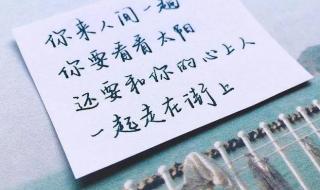 你来人间一趟
你要看看太阳
还要和你的心上人
一起走在街上